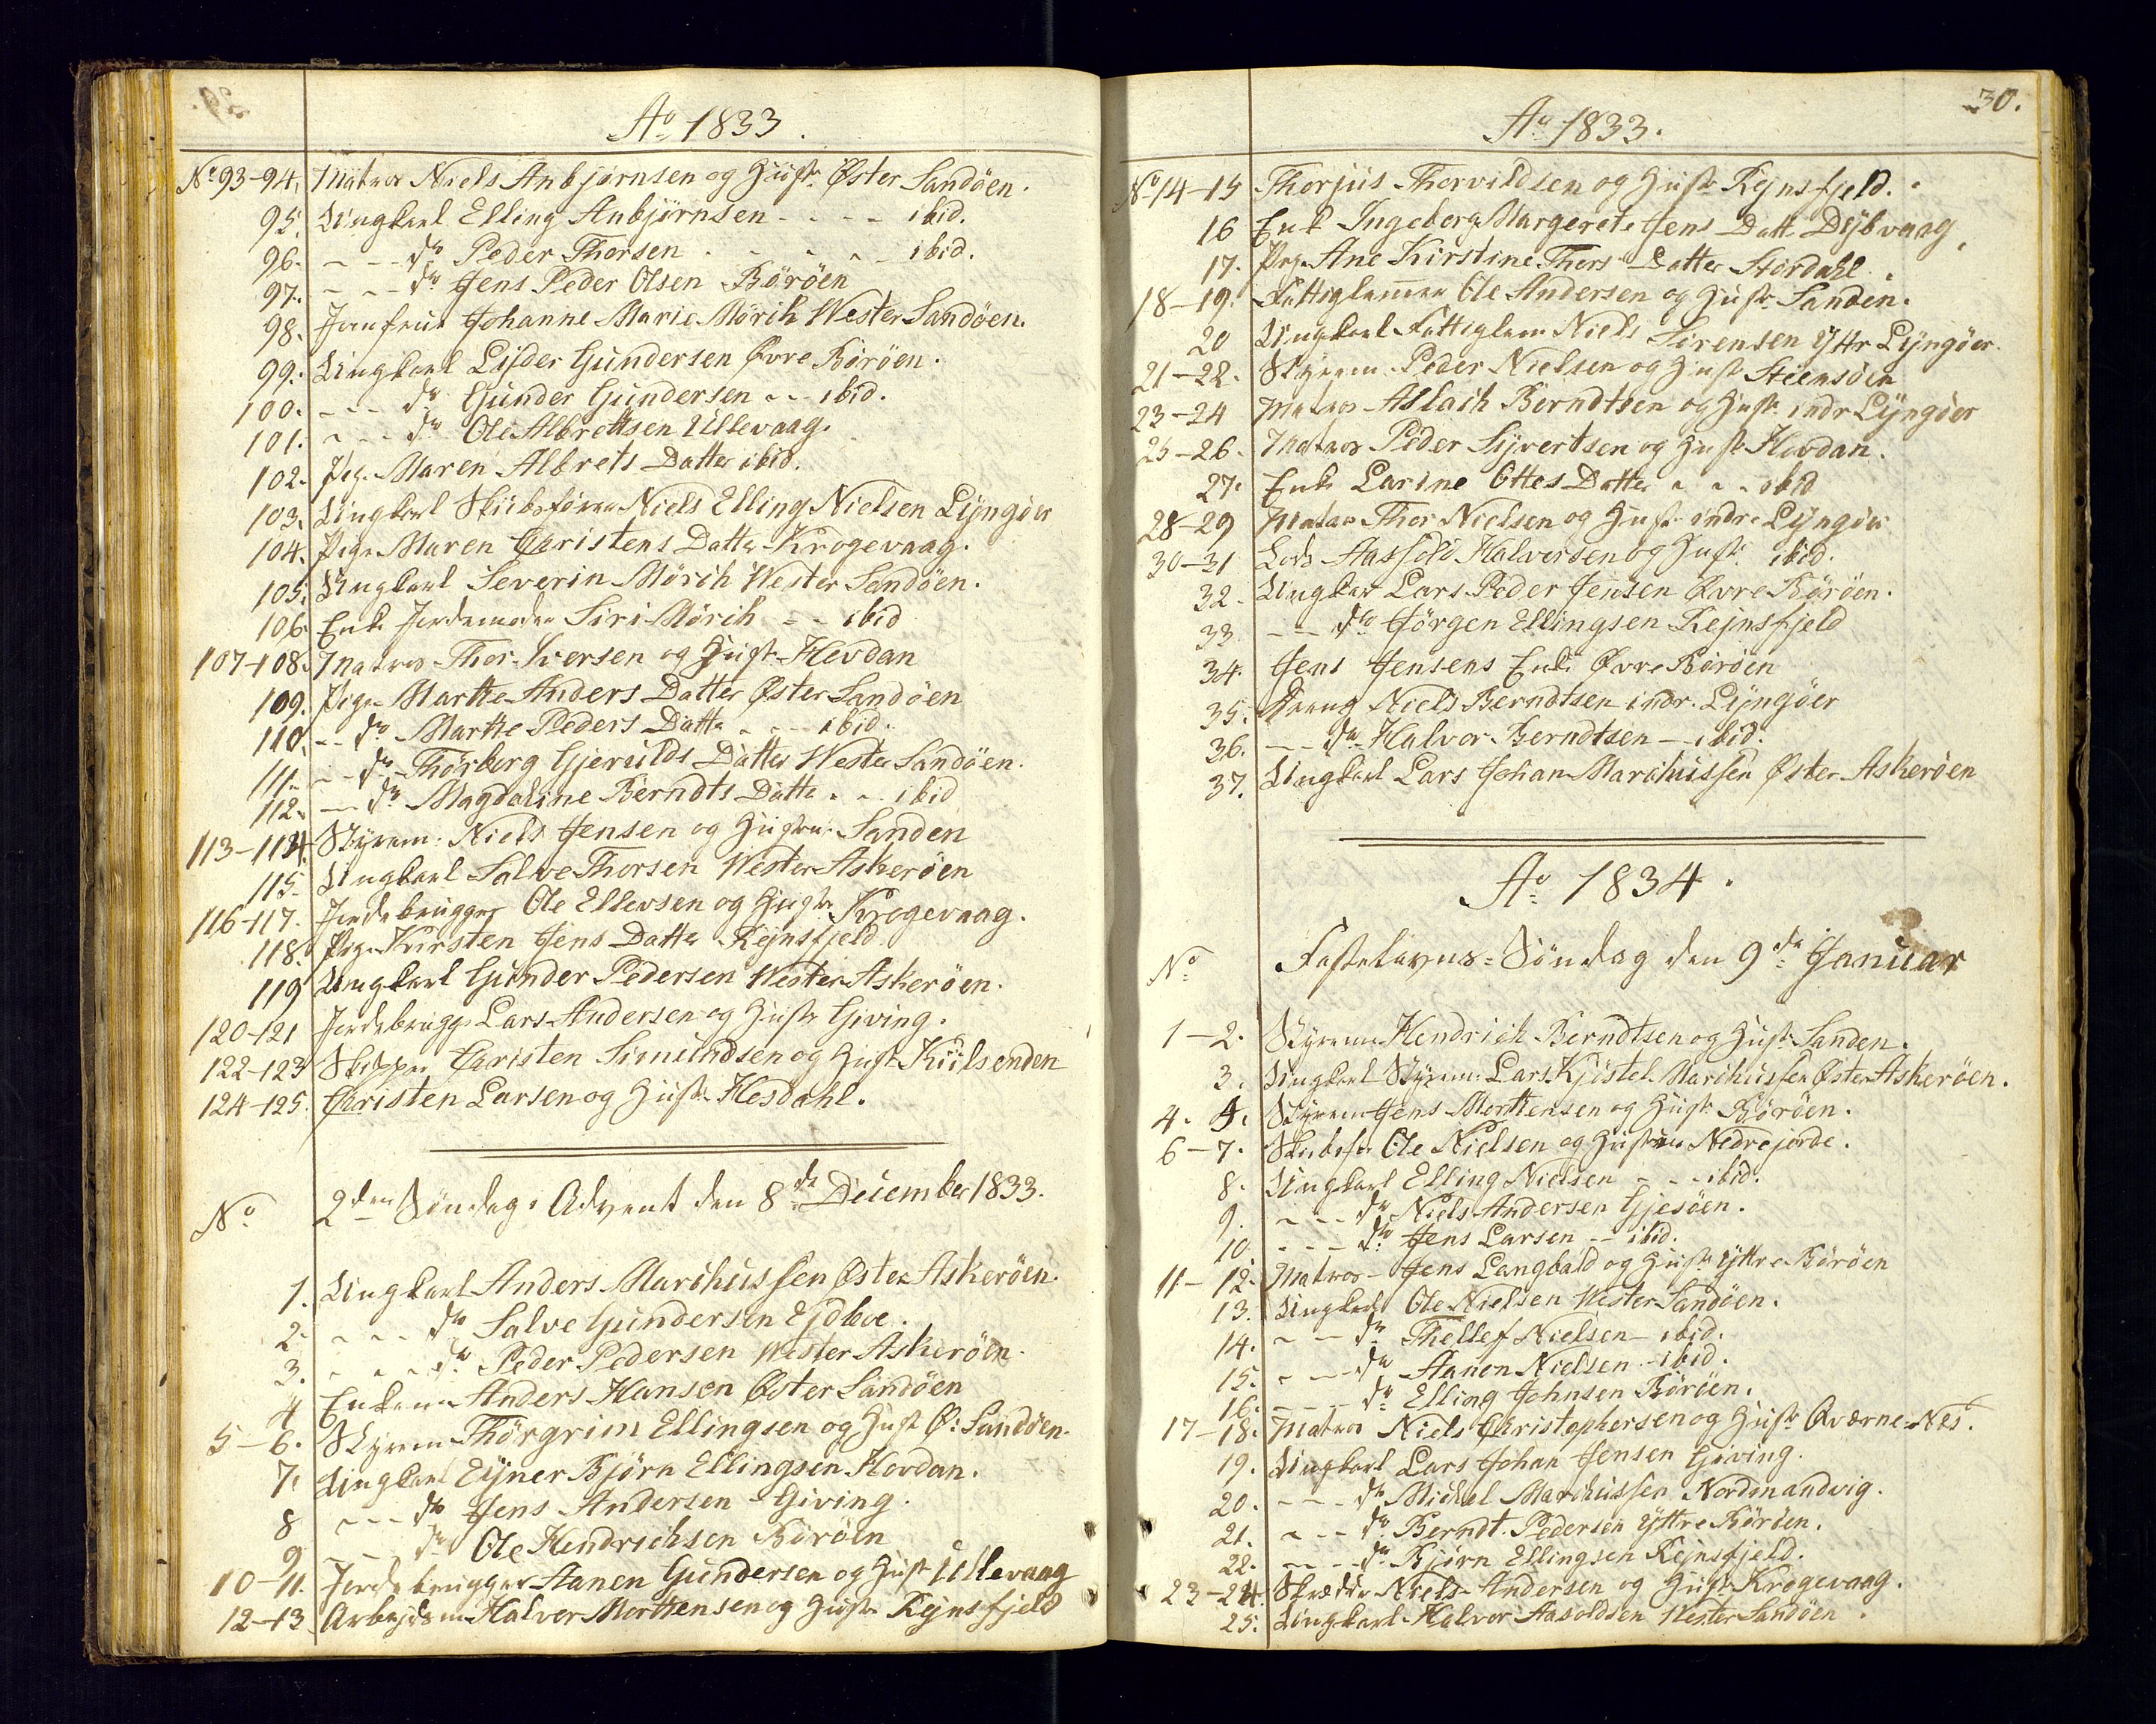 Ao 1833.
No 93-94. Matros Niels Anbjørnsen og Hustr. Øster Sandöen.
95. Ungkarl Elling Anbjørnsen - - - - ibid.
96. - - - do Peder Thorsen - - - - ibid.
97. - - - do Jens Peder Olsen Böröen
98. Jomfrue Johanne Marie Mörch Wester Sandöen.
99. Ungkarl Lijder Gundersen Övre Böröen.
100. - - - do Gunder Gundersen - - ibid.
101. - - - do Ole Albrettsen Ullevaag.
102. Pige Maren Albrets Datter ibid.
103. Ungkarl Skibsfører Niels Elling Nielsen Lyngöer
104. Pige Maren Christens Datter Krogevaag.
105. Ungkarl Severin Mörch Wester Sandöen.
106 Enke Jordemoder Siri Mörch - - ibid
107-108. Matros Thor Iversen og Hustr. Hovdan
109. Pige Marthe Anders Datter Øster Sandöen
110. - - do Marthe Peders Datter - - - ibid.
111. - - do Thorborg Gjerulds Datter Wester Sandöen.
112. - - do Magdaline Berndts Datter - - ibid
113-114. Styrem: Niels Jensen og Hustrue Sanden
115. Ungkarl Salve Thorsen Wester Askeröen
116-117. Jordbrugger Ole Ellevsen og Hustr. Krogevaag.
118. Pige Kirsten Jens Datter Rejnsfjeld
119 Ungkarl Gunder Pedersen Wester Askeröen.
120-121 Jordebrugger Lars Andersen og Hustr Giving.
122-123 Skipper Christen Simundsen og Hustr Kiilsenden
124-125. Christen Larsen og Hustr. Hesdahl.
No 2den Söndag. Advent den 8de December 1833.
1. Ungkarl Anders Marchussen Øster Askeröen.
2. - - - do Salve Gundersen Ejdboe.
3. - - - do Peder Pedersen Wester Askeröen.
4 Enkem Anders Hansen Øster Sandöen
5-6. Styrem Thorgrim Ellingsen og Hustr Ø: Sandöen.
7. Ungkarl Eyner Bjørn Ellingsen Hovdan.
8 - - - do Jens Andersen - Giving.
9 - - - do Ole Hendrichsen Böröen
10-11. Jordebrugger Aanen Gundersen og Hustr Ullevaag
12-13. Arbejdsm Halvor Morttensen og Hustr. Rejnsfjeld
30.
Ao 1833.
No 14-15 Thorjus Thorvildsen og Hustr Rejnsfjeld.
16 Enk Ingeborg Margerete Jens Datt Dybvaag.
17. Pige Ane Kirstine Thors Datter Stordahl.
18-19. Fattiglemmer Ole Andersen og Hustr. Sanden.
20 Ungkarl Fattiglem Niels Sörensen Yttr Lyngöer.
21-22. Styrem. Peder Nielsen og Hustr Steensöen
23-24 Matros Aslach Berndtsen og Hustr. indr Lyngöer
25-26. Matros Peder Syvertsen og Hustr Hovdan.
27. Enke Larine Ottes Datter - - - ibid
28-29 Matros Thor Nielsen og Hustr. indre Lyngöer
30-31 Lods Aassold Halvorsen og Hustr. ibid.
32. Ungkar Lars Peder Jensen Övre Böröen.
33. - - - do Jörgen Ellingsen Rejnsfjeld
34. Jens Jensens Enke Övre Böröen
35. Dreng Niels Berndtsen indr. Lyngöer
36. - - - do Halvor Berndtsen - ibid.
37. Ungkarl Lars Johan Marchussen Øster Askeröen
Ao 1834.
No Fastelavns-Söndag den 9de Januar
1-2. Styrem Hendrich Berndtsen og Hustr. Sanden.
3. Ungkarl Styrem: Lars Kjöstel Marchussen Øster Askeröen.
4. 5. Styrem Jens Morttensen og Hustr Böröen.
6-7. Skibsfr Ole Nielsen og Hustrue Nedrejorde.
8. Ungkarl Elling Nielsen - - ibid.
9. - - - do Niels Andersen Gjesöen.
10. - - - do Jens Larsen - - ibid.
11-12. Matros - Jens Langbald og Hustr yttre Böröen
13. Ungkarl Ole Nielsen Wester Sandöen.
14. - - - do Thellef Nielsen - ibid.
15. - - - do Aanen Nielsen - ibid.
16. - - - do Elling Johnsen Böröen.
17-18. Matros Niels Christophersen og Hustr Qværne-Næs.
19. Ungkarl Lars Johan Jensen Giving.
20. - - - do Michel Marchussen Nordmandvig.
21. - - - do Berndt Pedersen yttre Böröen.
22. - - - do Bjørn Ellingsen Rejnsfjeld.
23-24. Skrædder Niels Andersen og Hustr Krogevaag.
25. Ungkarl Halvor Aasoldsen Wester Sandöen.